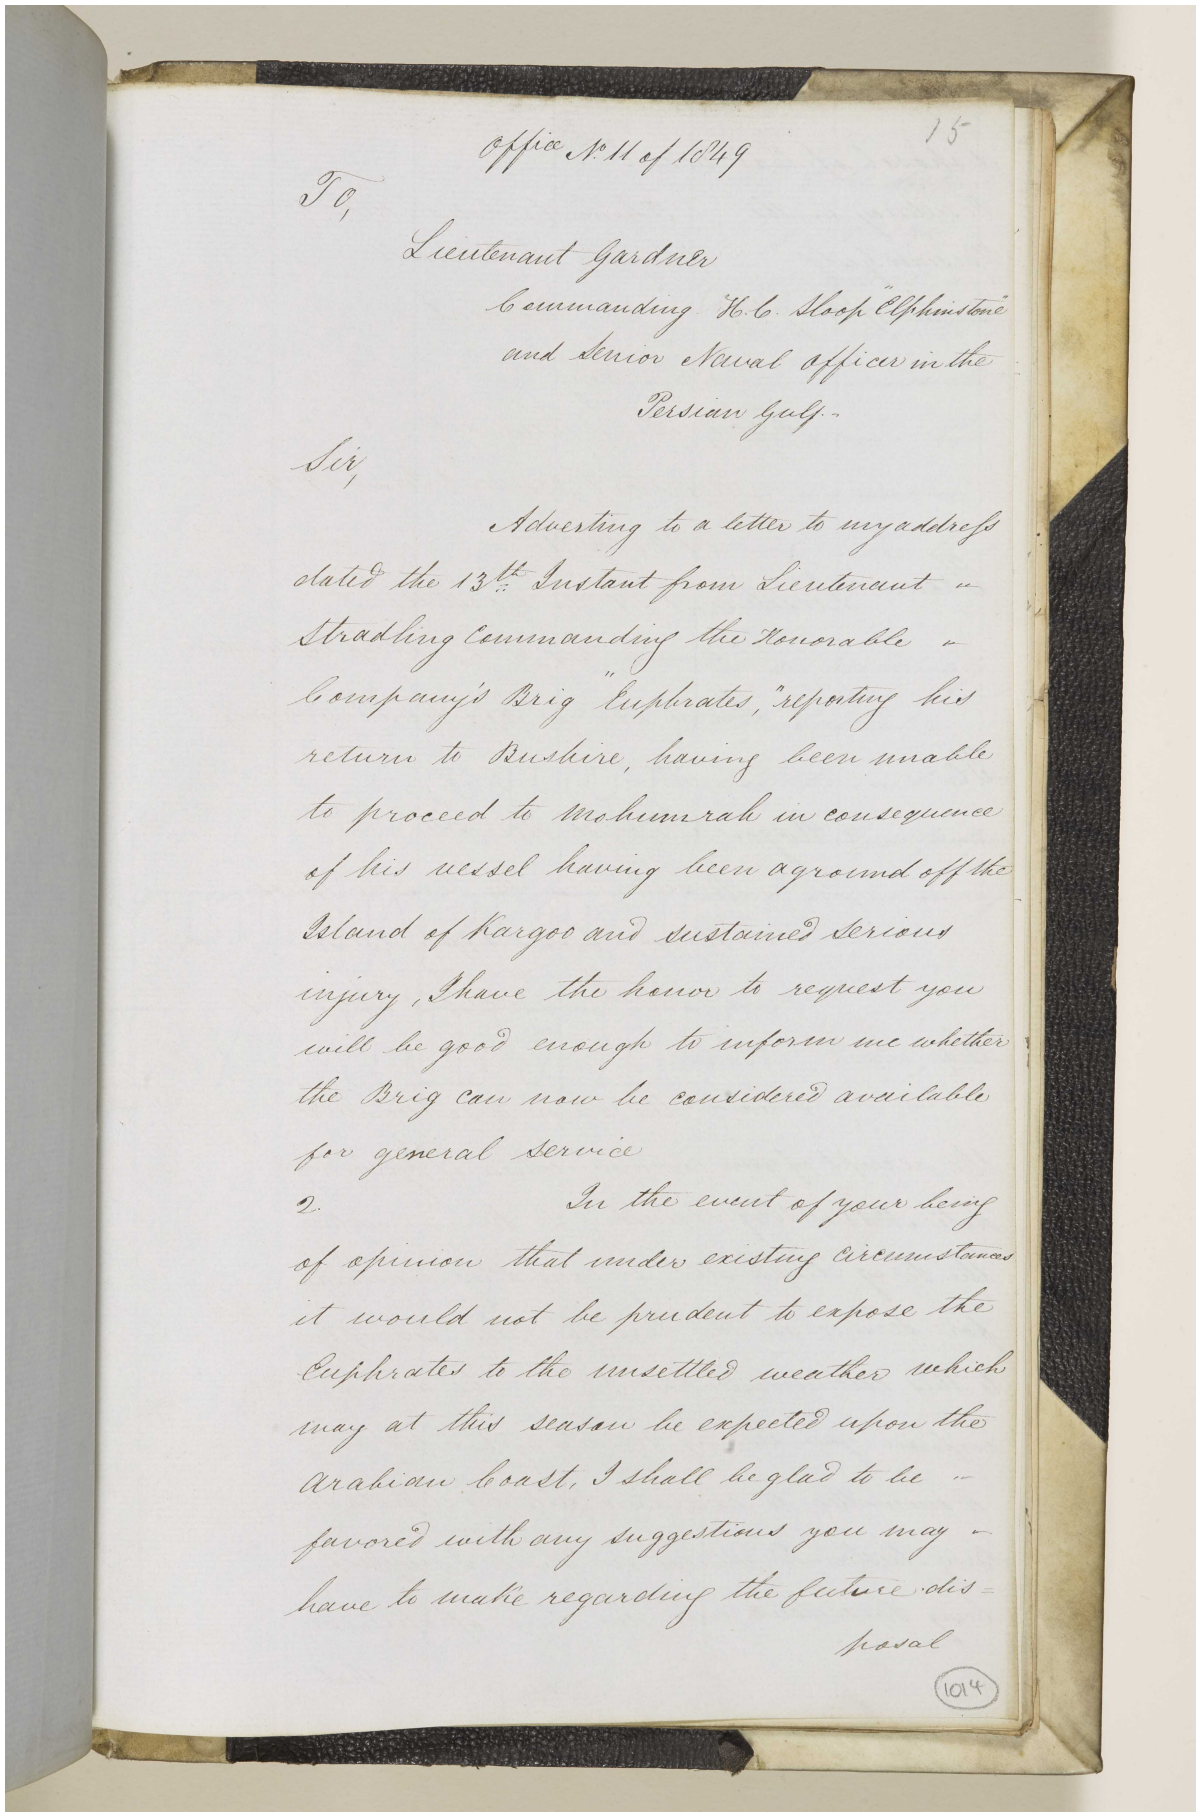 15
Office No. 11 of 1849
To,
Lieutenant Gardner
Commanding H.C. Sloop "Elphinstone"
and Senior Naval Officer in the
Persian Gulf.-
Sir,
Adverting to a letter to my address
dated the 13th Instant from Lieutenant -
Stradling Commanding the Honorable -
Company's Brig "Euphrates," reporting his
return to Bushire, having been unable
to proceed to Mohumrah in consequence
of his vessel having been aground off the
Island of Kargoo and sustained serious
injury, I have the honor to request you
will be good enough to inform me whether
the Brig can now be considered available
for general service
2. In the event of your being
of opinion that under existing circumstances
it would not be prudent to expose the
Euphrates to the unsettled weather which
may at this season be expected upon the
Arabian Coast, I shall be glad to be -
favored with any suggestions you may -
have to make regarding the future dis=
posal
1014